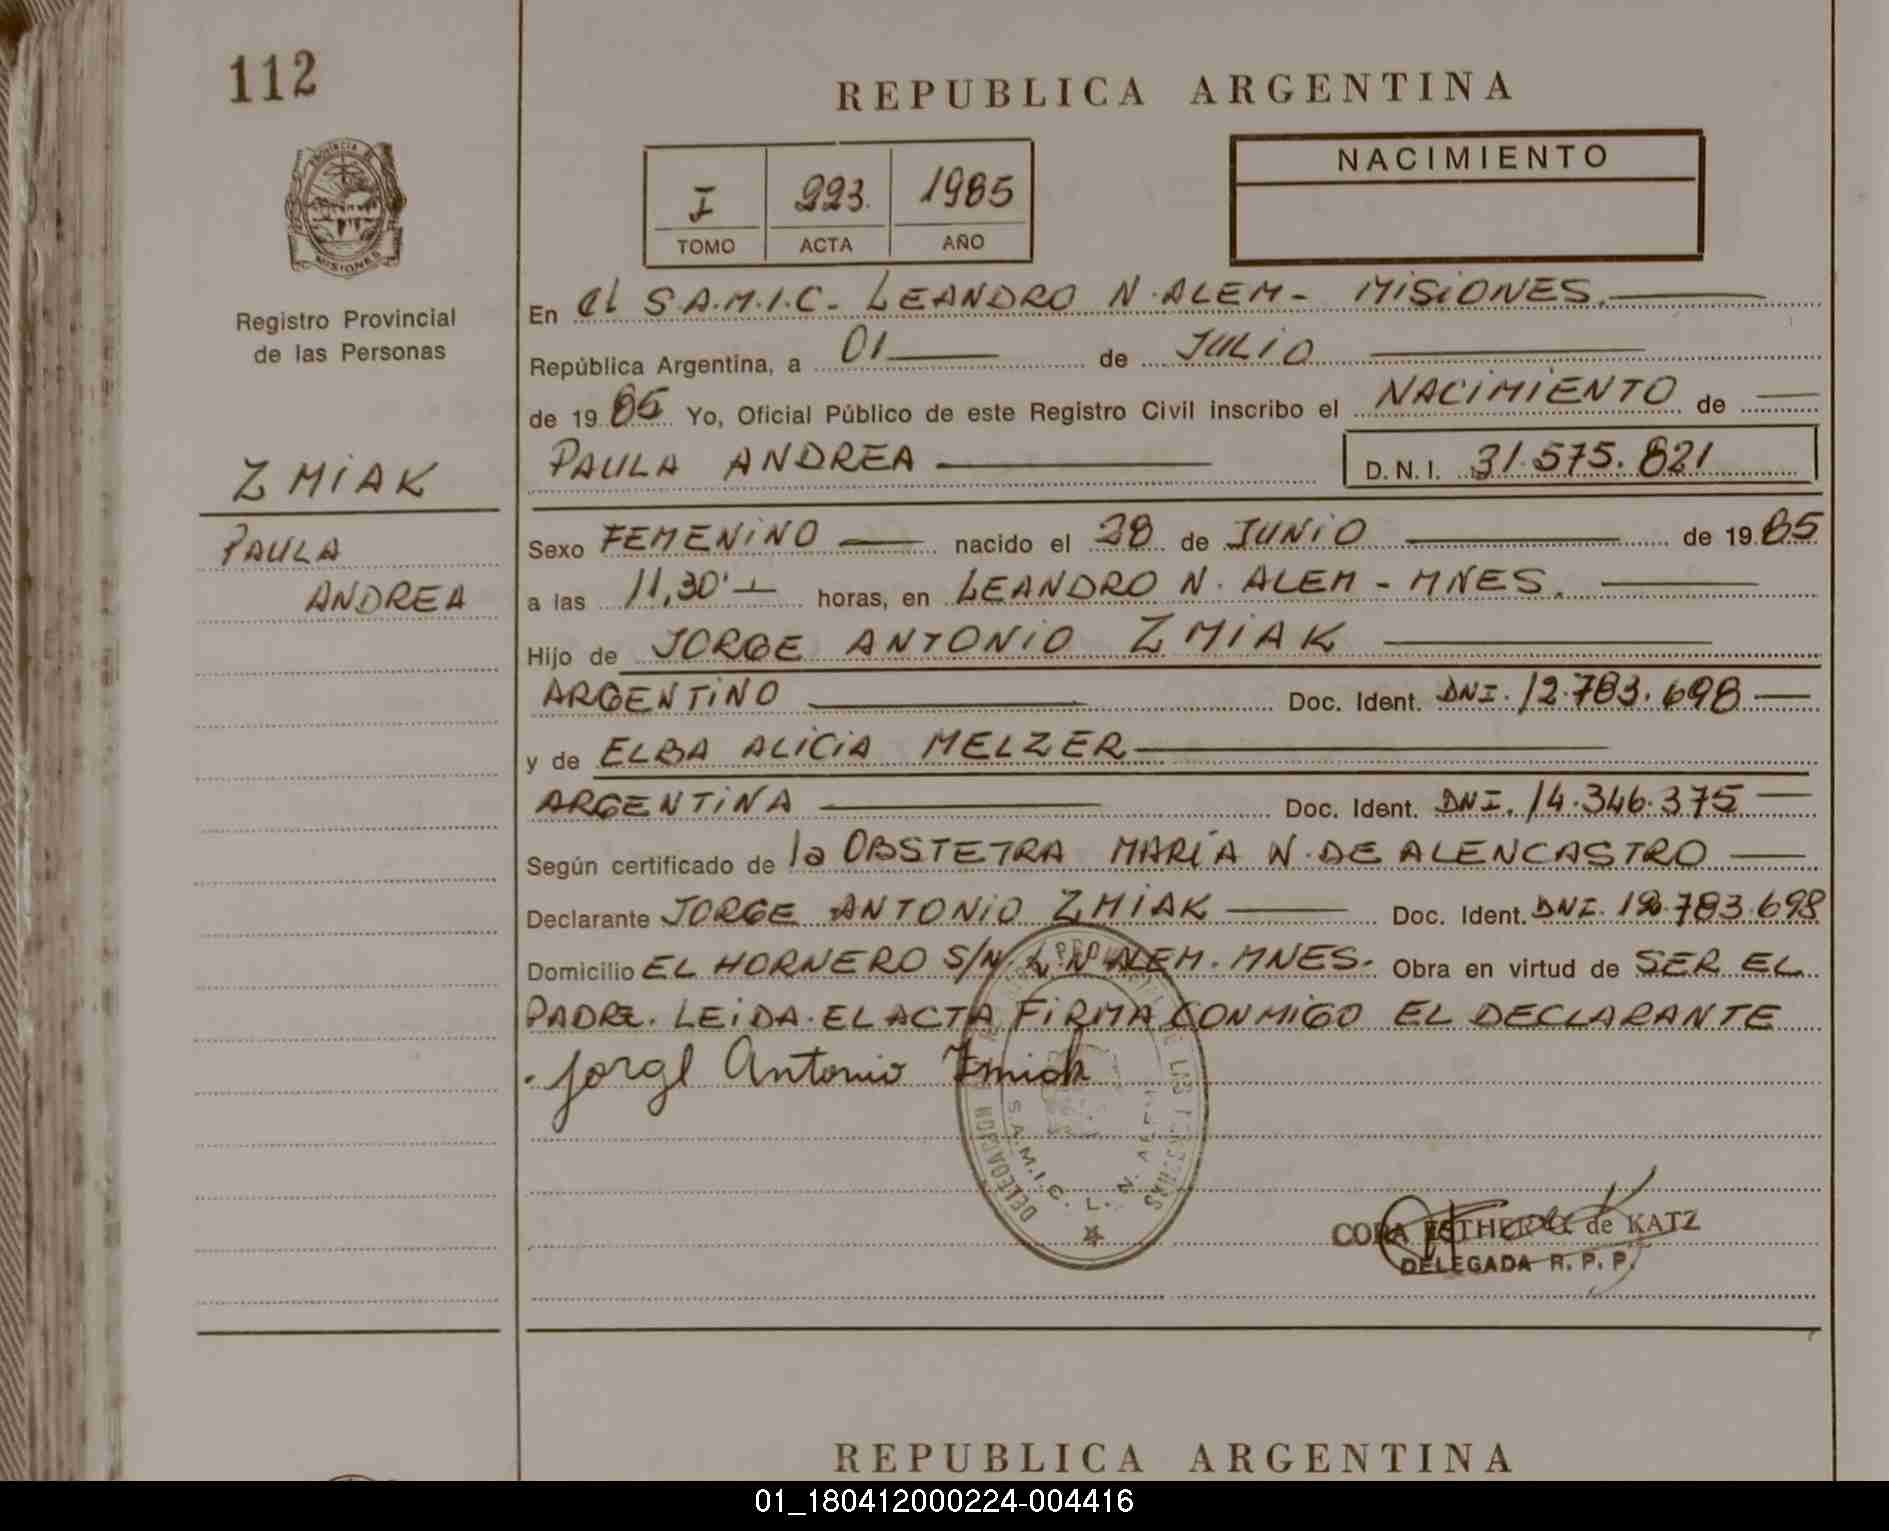 112
REPUBLICA ARGENTINA
NACIMIENTO
I 223. 1985
TOMO ACTA AÑO
PROVINCIA DE
MISIONES
Registro Provincial
de las Personas
En el S.A.M.I.C. LEANDRO N. ALEM - MISIONES.
República Argentina, a 01 de JULIO
de 1985 Yo, Oficial Público de este Registro Civil inscribo el NACIMIENTO de
PAULA ANDREA D.N.I. 31.575.821
ZMIAK
PAULA
ANDREA
Sexo FEMENINO nacido el 28 de JUNIO de 1985
a las 11,30' horas, en LEANDRO N. ALEM - MNES.
Hijo de JORGE ANTONIO ZMIAK
ARGENTINO Doc. Ident. DNI. 12.783.698
y de ELBA ALICIA MELZER
ARGENTINA Doc. Ident. DNI. 14.346.375
Según certificado de la OBSTETRA MARÍA N. DE ALENCASTRO
Declarante JORGE ANTONIO ZMIAK Doc. Ident. DNI. 12.783.698
Domicilio EL HORNERO S/N L.N. ALEM. MNES. Obra en virtud de SER EL
PADRE. LEIDA EL ACTA FIRMA CONMIGO EL DECLARANTE
Jorge Antonio Zmiak
DELEGACION
S.A.M.I.C. L. N. ALEM
CORA ESTHER de KATZ
DELEGADA R. P. P.
REPUBLICA ARGENTINA
01_180412000224-004416